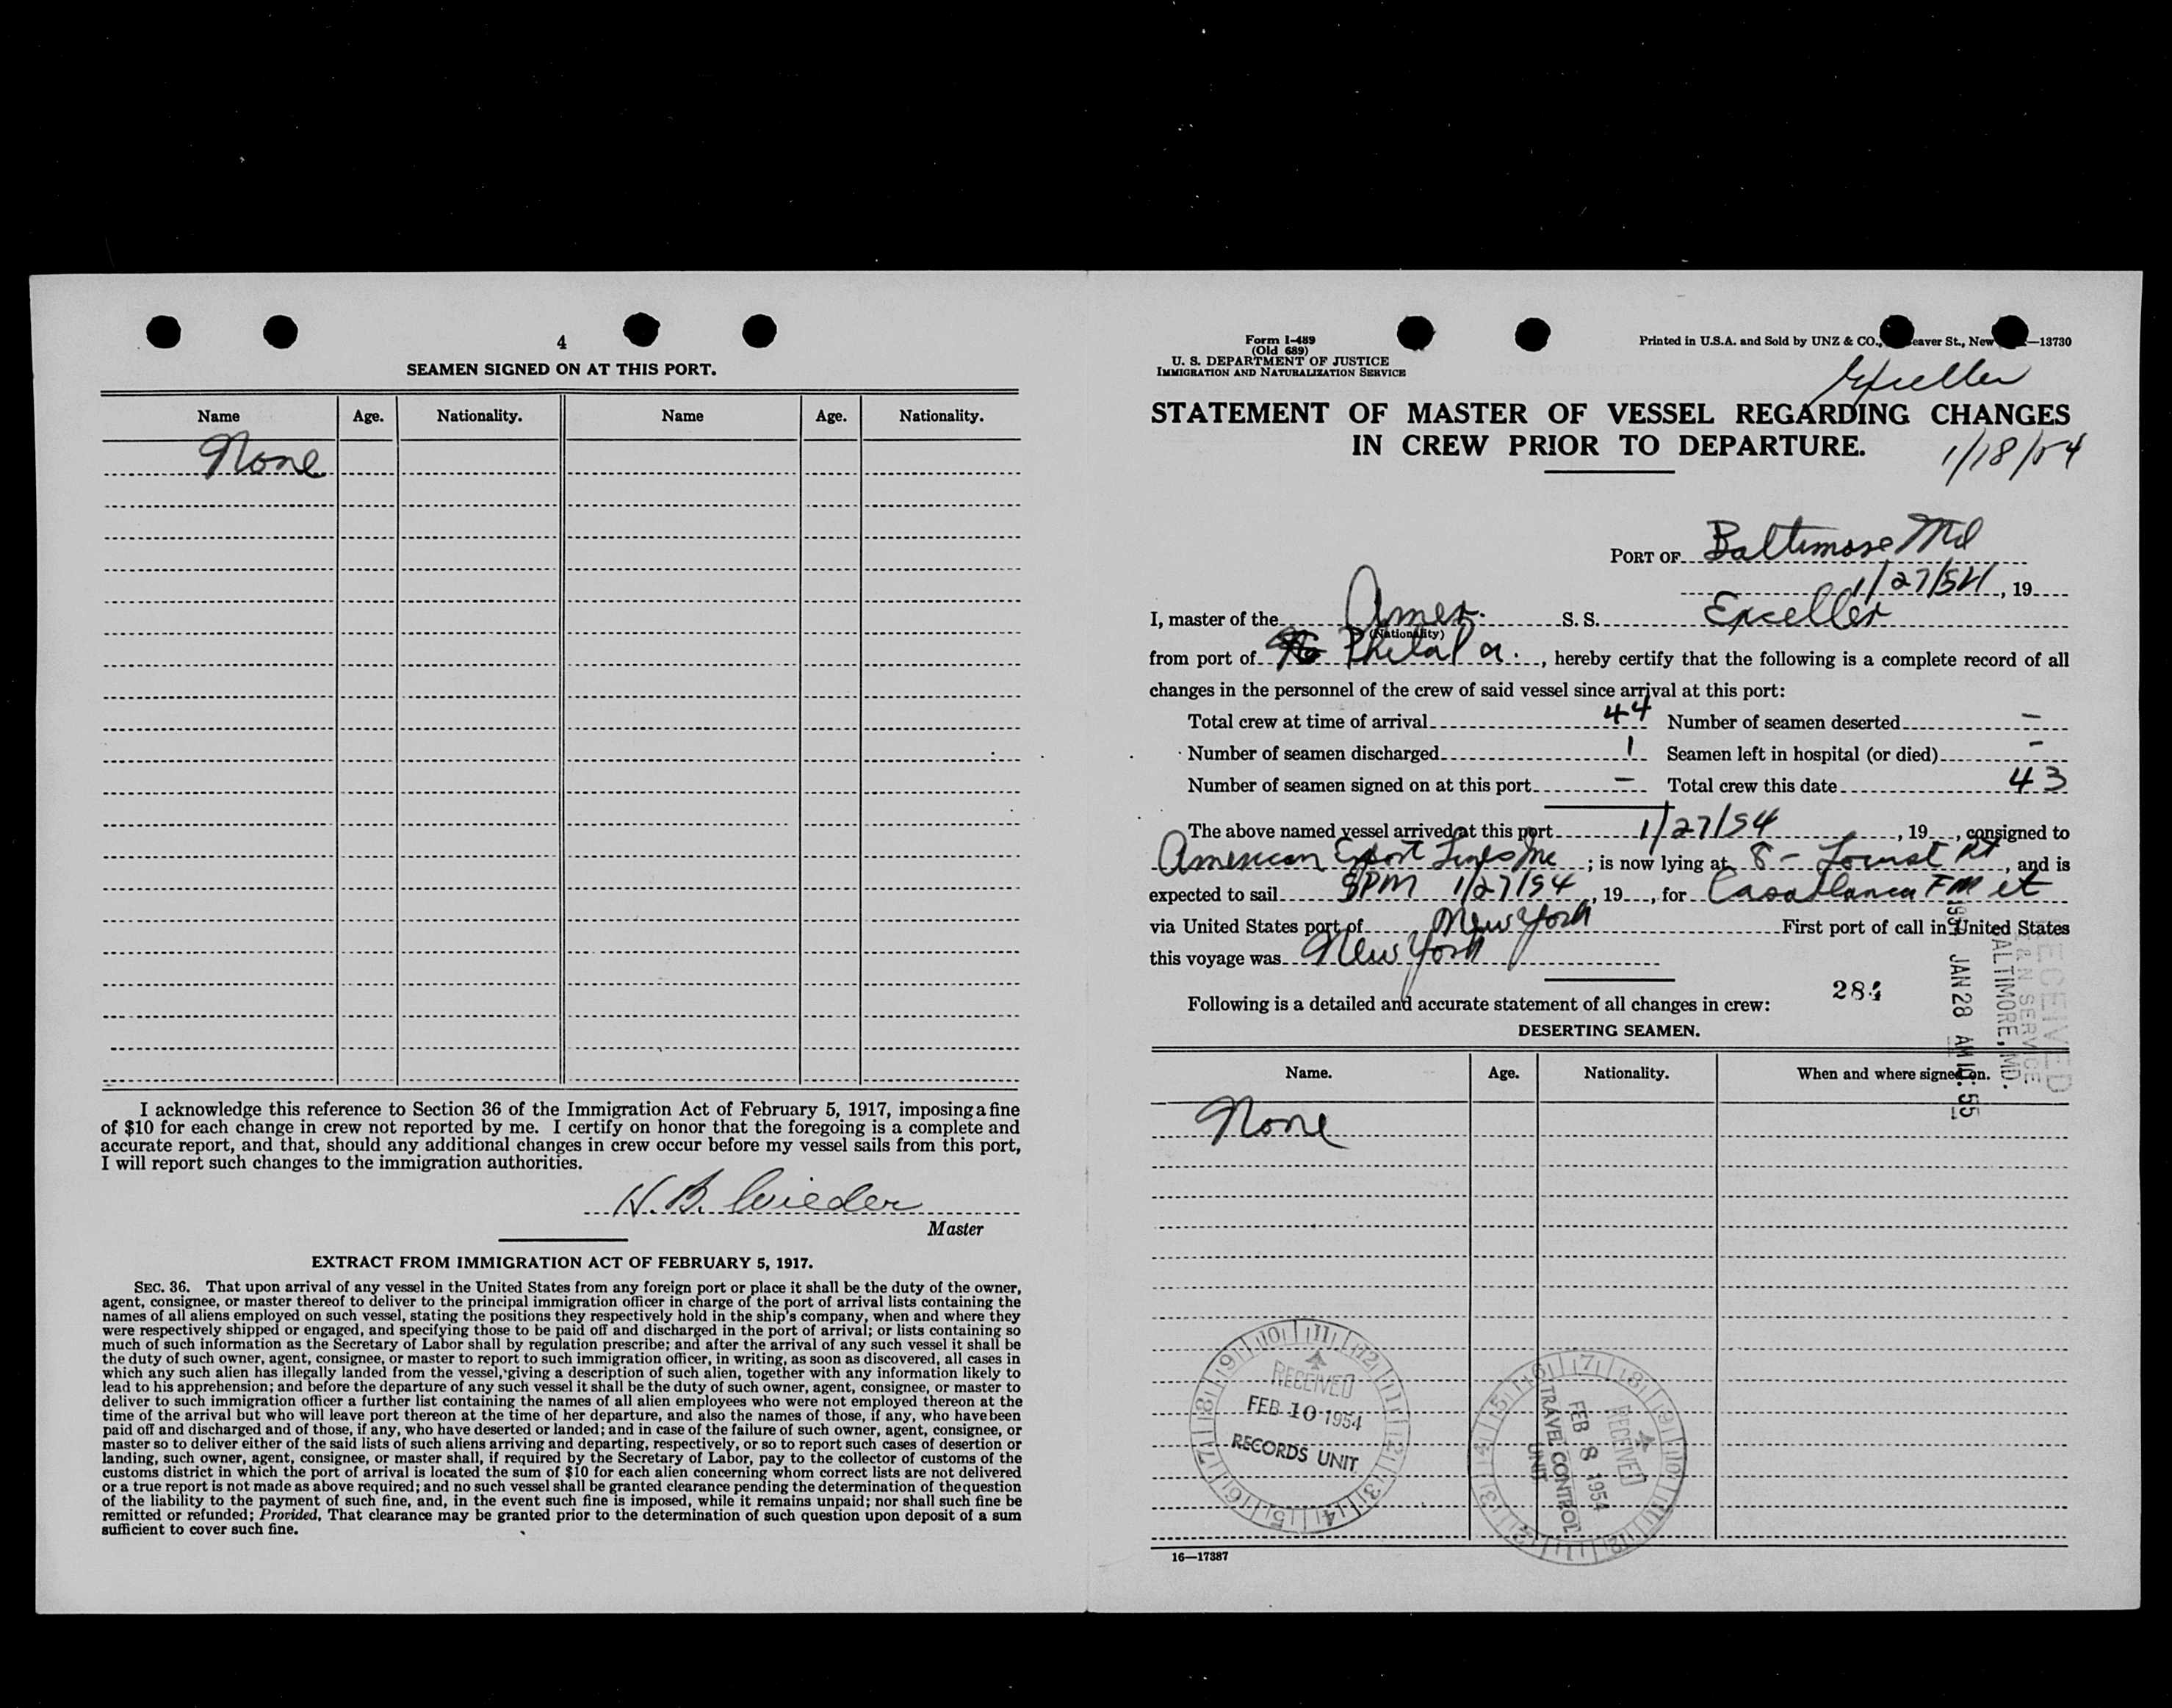 4
SEAMEN SIGNED ON AT THIS PORT.
Name Age. Nationality. Name Age. Nationality.
None
I acknowledge this reference to Section 36 of the Immigration Act of February 5, 1917, imposing a fine
of $10 for each change in crew not reported by me. I certify on honor that the foregoing is a complete and
accurate report, and that, should any additional changes in crew occur before my vessel sails from this port,
I will report such changes to the immigration authorities.
H. B. Wieder
Master
EXTRACT FROM IMMIGRATION ACT OF FEBRUARY 5, 1917.
SEC. 36. That upon arrival of any vessel in the United States from any foreign port or place it shall be the duty of the owner,
agent, consignee, or master thereof to deliver to the principal immigration officer in charge of the port of arrival lists containing the
names of all aliens employed on such vessel, stating the positions they respectively hold in the ship's company, when and where they
were respectively shipped or engaged, and specifying those to be paid off and discharged in the port of arrival; or lists containing so
much of such information as the Secretary of Labor shall by regulation prescribe; and after the arrival of any such vessel it shall be
the duty of such owner, agent, consignee, or master to report to such immigration officer, in writing, as soon as discovered, all cases in
which any such alien has illegally landed from the vessel, giving a description of such alien, together with any information likely to
lead to his apprehension; and before the departure of any such vessel it shall be the duty of such owner, agent, consignee, or master to
deliver to such immigration officer a further list containing the names of all alien employees who were not employed thereon at the
time of the arrival but who will leave port thereon at the time of her departure, and also the names of those, if any, who have been
paid off and discharged and of those, if any, who have deserted or landed; and in case of the failure of such owner, agent, consignee, or
master so to deliver either of the said lists of such aliens arriving and departing, respectively, or so to report such cases of desertion or
landing, such owner, agent, consignee, or master shall, if required by the Secretary of Labor, pay to the collector of customs of the
customs district in which the port of arrival is located the sum of $10 for each alien concerning whom correct lists are not delivered
or a true report is not made as above required; and no such vessel shall be granted clearance pending the determination of the question
of the liability to the payment of such fine, and, in the event such fine is imposed, while it remains unpaid; nor shall such fine be
remitted or refunded; Provided, That clearance may be granted prior to the determination of such question upon deposit of a sum
sufficient to cover such fine.
Form I-489
(Old 689)
U. S. DEPARTMENT OF JUSTICE
IMMIGRATION AND NATURALIZATION SERVICE
Printed in U.S.A. and Sold by UNZ & CO., eaver St., New —13730
Exceller
STATEMENT OF MASTER OF VESSEL REGARDING CHANGES
IN CREW PRIOR TO DEPARTURE.
1/18/54
PORT OF Baltimore Md
1/27/54, 19
I, master of the Amer. S. S. Exceller
(Nationality)
from port of Phila Pa., hereby certify that the following is a complete record of all
changes in the personnel of the crew of said vessel since arrival at this port:
Total crew at time of arrival 44 Number of seamen deserted –
Number of seamen discharged 1 Seamen left in hospital (or died) –
Number of seamen signed on at this port – Total crew this date 43
The above named vessel arrived at this port 1/27/54, 19, consigned to
American Export Lines Inc; is now lying at 8 - Locust Pt, and is
expected to sail 8PM 1/27/54, 19, for Casablanca F M
via United States port of New York First port of call in United States
this voyage was New York
Following is a detailed and accurate statement of all changes in crew:
284
RECEIVED
I & N SERVICE
BALTIMORE, MD.
1954 JAN 28 AM 10:55
DESERTING SEAMEN.
Name. Age. Nationality. When and where signed on.
None
9 10 11 12 1 2 3 4 5 6 7 8
RECEIVED
FEB 10 1954
RECORDS UNIT
6 7 8 9 10 11 12 1 2 3 4 5
RECEIVED
FEB 8 1954
TRAVEL CONTROL
UNIT
16—17387